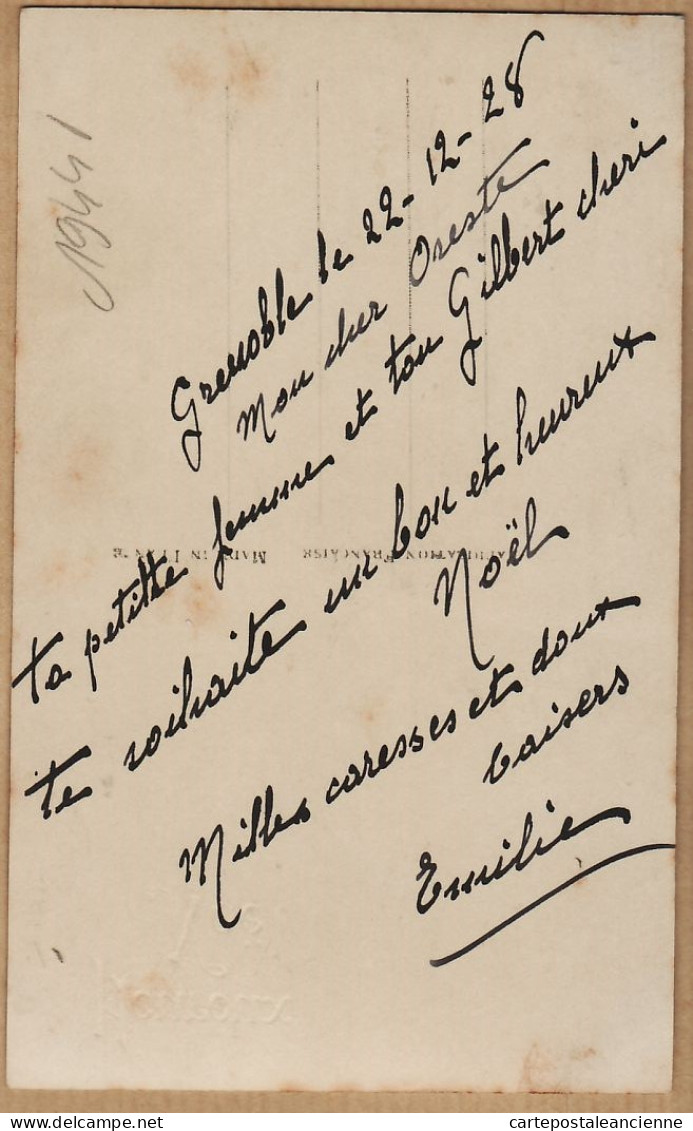 19441
Grenoble le 22-12-28
Mon cher Oreste
Ta petite femme et ton Gilbert cheri
te soihaite un bon et heureux
Noël
Milles caresses et doux
baisers
Emilie
FABRICATION FRANÇAISE MADE IN FRANCE
cartepostaleancienne